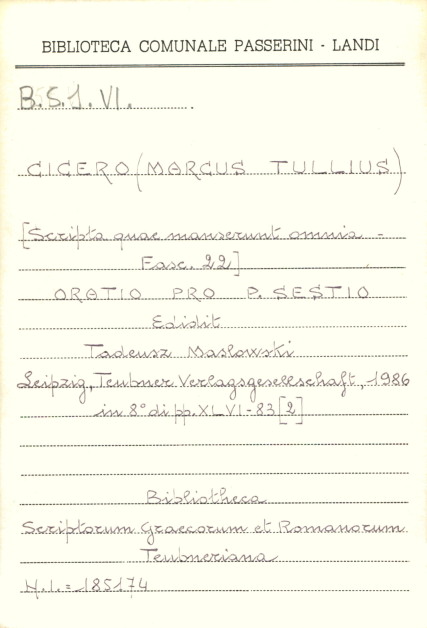 BIBLIOTECA COMUNALE PASSERINI - LANDI
B.S.J.VI.
CICERO (MARCUS TULLIUS)
[Scripta quae manserunt omnia -
Fasc. 22]
ORATIO PRO P. SESTIO
Edidit
Tadeusz Maslowski
Leipzig, Teubner Verlagsgesellschaft, 1986
in 8° di pp. XLVI-83[2]
Bibliotheca
Scriptorum Graecorum et Romanorum
Teubneriana
N.I. = 185174